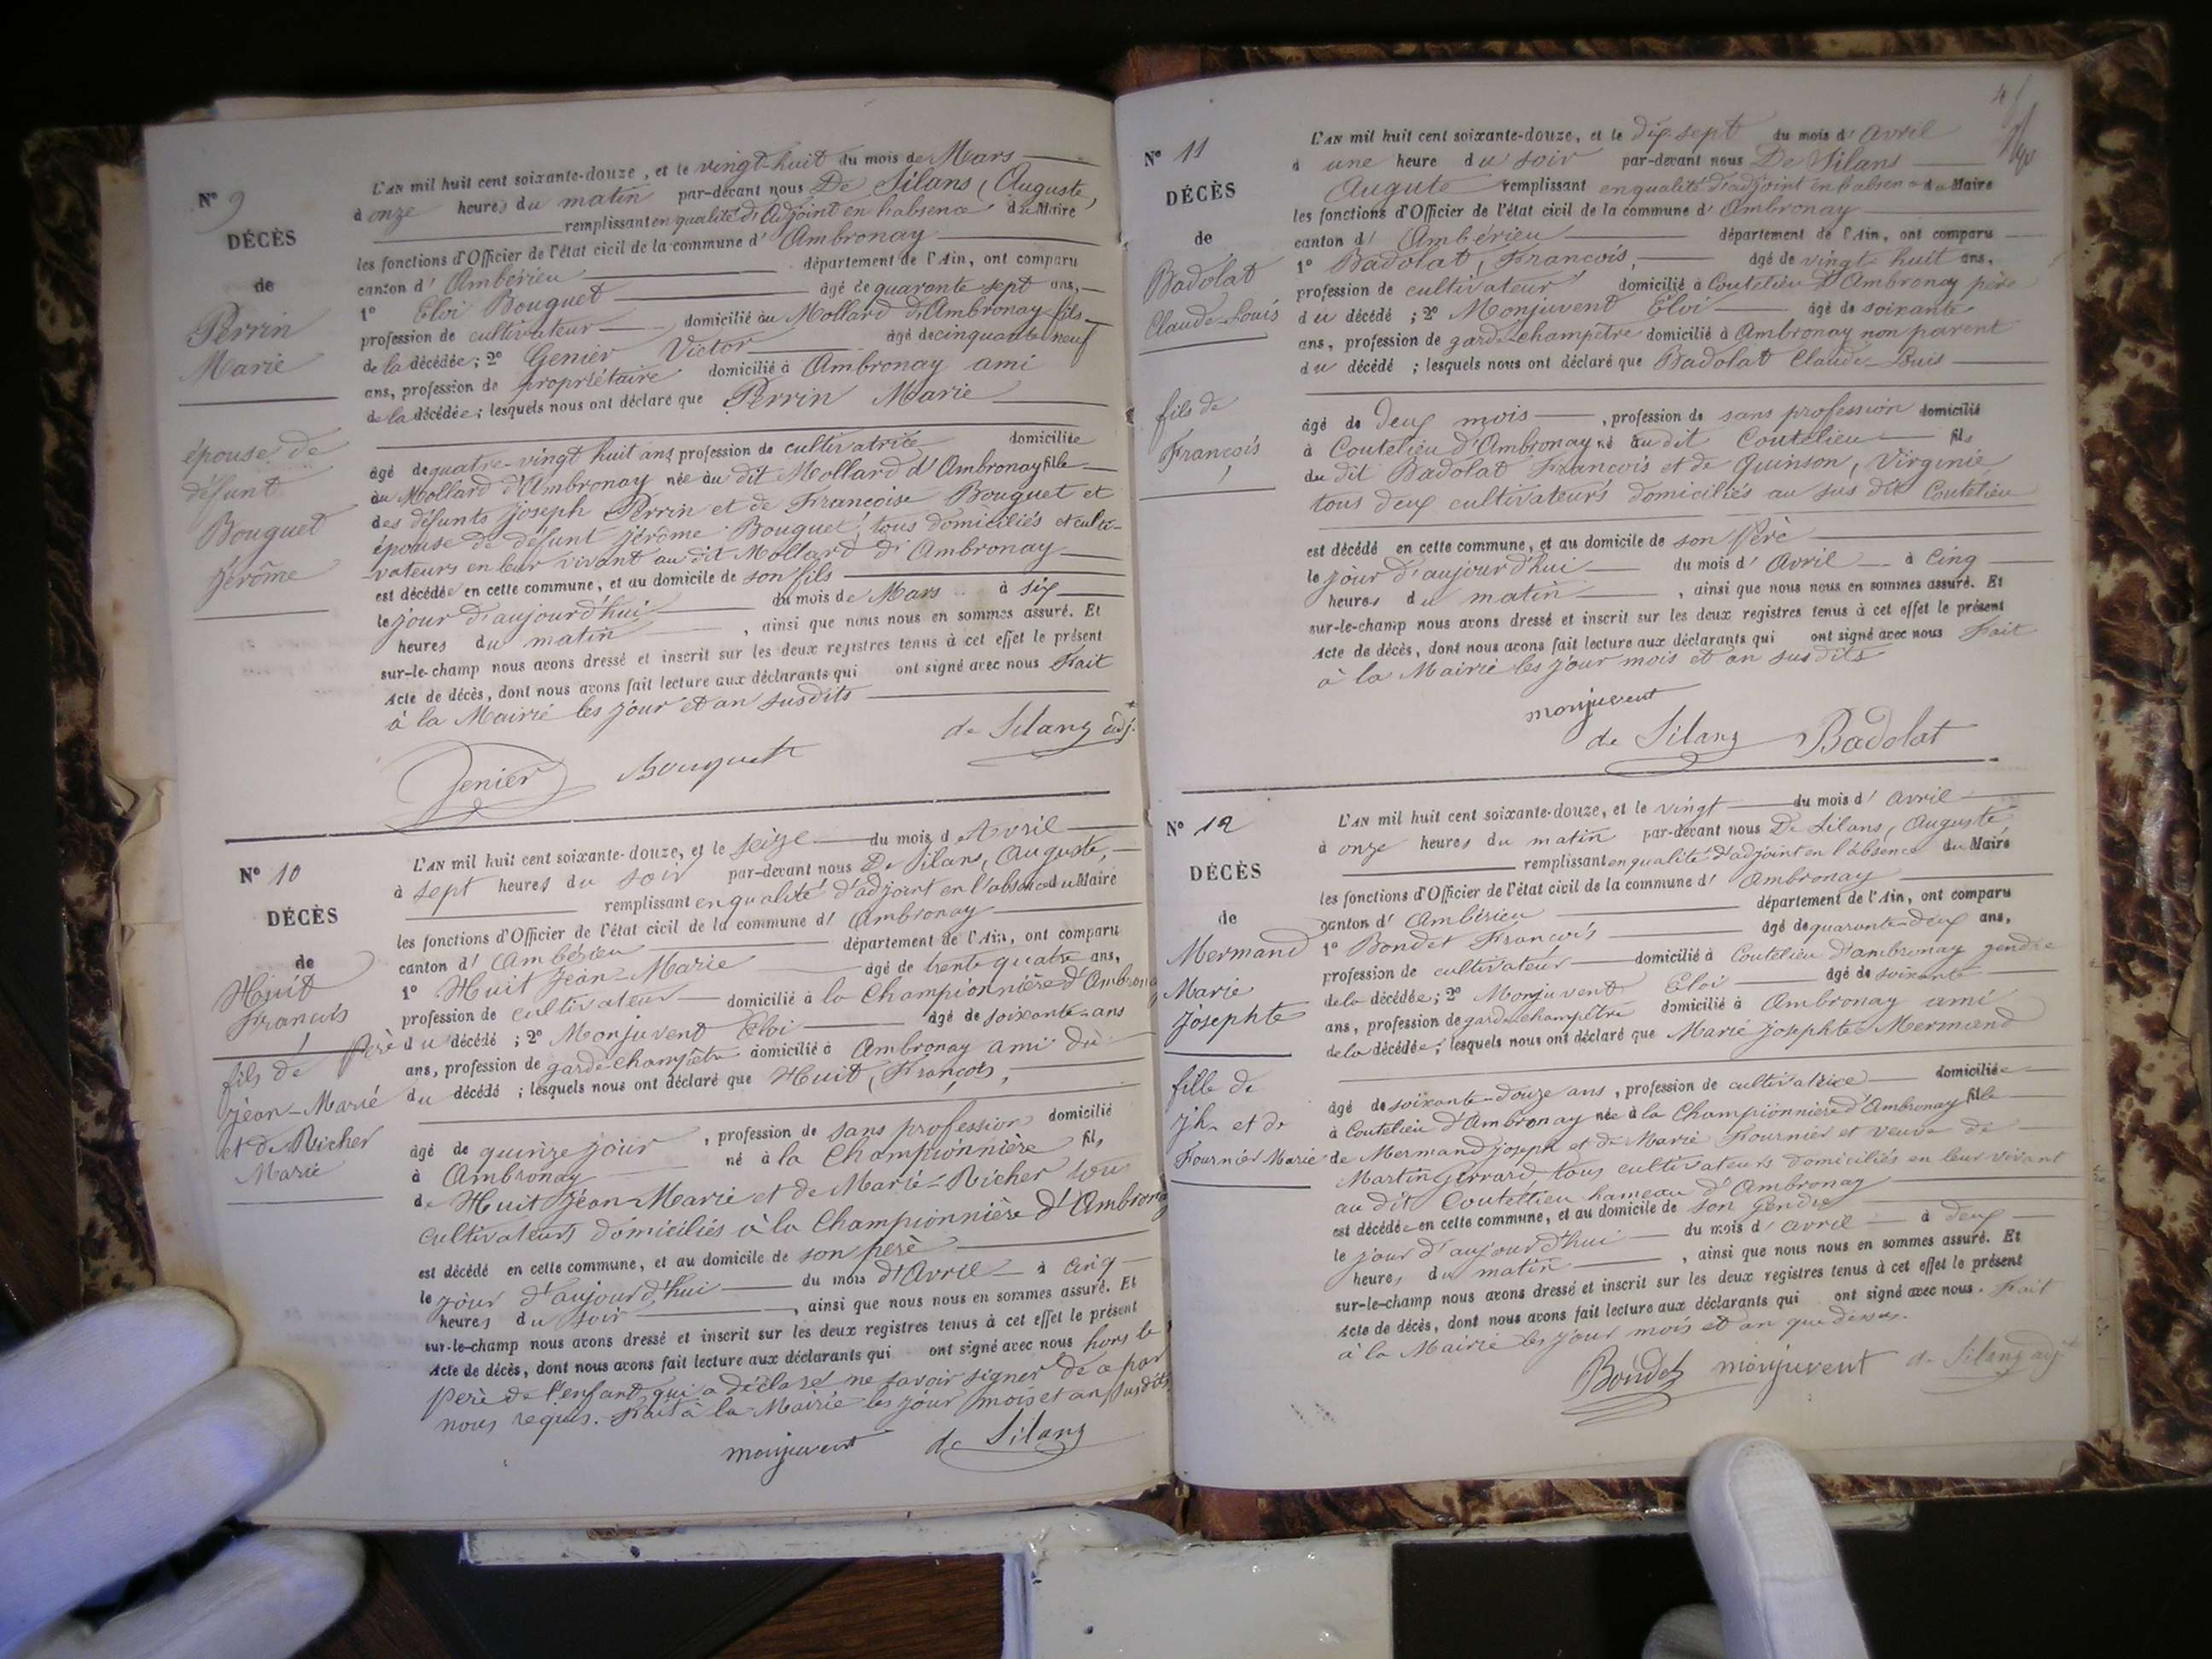 N° 9
DÉCÈS
de
Perrin
Marie
épouse de
défunt
Bouguet
Jérôme
L'AN mil huit cent soixante-douze, et le vingt-huit du mois de Mars
à onze heures du matin par-devant nous De Silans, Auguste,
remplissant en qualité d'Adjoint en l'absence du Maire
les fonctions d'Officier de l'état civil de la commune d' Ambronay
canton d' Ambérieu département de l'Ain, ont comparu
1° Eloi Bouguet âgé de quarante sept ans,
profession de cultivateur domicilié au Mollard d'Ambronay fils
de la décédée; 2° Genier Victor âgé de cinquante neuf
ans, profession de propriétaire domicilié à Ambronay ami
de la décédée; lesquels nous ont déclaré que Perrin Marie
âgé de quatre-vingt huit ans profession de cultivatrice domiciliée
au Mollard d'Ambronay née au dit Mollard d'Ambronay fille
des défunts Joseph Perrin et de Francoise Bouguet et
épouse de défunt Jérôme Bouguet, tous domiciliés et culti-
vateurs en leur vivant au dit Mollard d'Ambronay
est décédée en cette commune, et au domicile de son fils
le jour d'aujourd'hui du mois de Mars à six
heures du matin, ainsi que nous nous en sommes assuré. Et
sur-le-champ nous avons dressé et inscrit sur les deux registres tenus à cet effet le présent
Acte de décès, dont nous avons fait lecture aux déclarants qui ont signé avec nous Fait
à la Mairie les jour et an susdits
de Silans adj.
Genier Bouguet
N° 10
DÉCÈS
de
Huit
Francois
fils de
Jean-Marie
et de Richer
Marie
L'AN mil huit cent soixante-douze, et le seize du mois d Avril
à sept heures du soir par-devant nous De Silans, Auguste,
remplissant en qualité d'adjoint en l'absence du Maire
les fonctions d'Officier de l'état civil de la commune d' Ambronay
canton d' Ambérieu département de l'Ain, ont comparu
1° Huit Jean-Marie âgé de trente quatre ans,
profession de cultivateur domicilié à la Championnière d'Ambrona
père du décédé; 2° Monjuvent Eloi âgé de soixante ans
ans, profession de garde champêtre domicilié à Ambronay ami du
du décédé; lesquels nous ont déclaré que Huit, François,
âgé de quinze jour, profession de sans profession domicilié
à Ambronay né à la Championnière fils
de Huit Jean-Marie et de Marie-Richer tou
cultivateurs domiciliés à la Championnière d'Ambrona
est décédé en cette commune, et au domicile de son père
le jour d'aujourd'hui du mois d'Avril à cinq
heures du soir, ainsi que nous nous en sommes assuré. Et
sur-le-champ nous avons dressé et inscrit sur les deux registres tenus à cet effet le présent
Acte de décès, dont nous avons fait lecture aux déclarants qui ont signé avec nous hors le
père de l'enfant qui a déclaré ne savoir signer de a par
nous requis. Fait à la Mairie les jour mois et an susdits
monjuvent de Silans
N° 11
DÉCÈS
de
Badolat
Claude-Louis
fils de
Francois
L'AN mil huit cent soixante-douze, et le dix-sept du mois d' Avril
à une heure du soir par-devant nous De Silans
Augute remplissant en qualité d'adjoint en l'absence du Maire
les fonctions d'Officier de l'état civil de la commune d' Ambronay
canton d' Ambérieu département de l'Ain, ont comparu
1° Badolat, Francois, âgé de vingt huit ans,
profession de cultivateur domicilié à Coutelieu d'Ambronay père
du décédé; 2° Monjuvent Eloi âgé de soixante
ans, profession de garde-champêtre domicilié à Ambronay non parent
du décédé; lesquels nous ont déclaré que Badolat Claude-Louis
âgé de Deux mois, profession de sans profession domicilié
à Coutelieu d'Ambronay né au dit Coutelieu fils
du dit Badolat Francois et de Quinson, Virginie
tous deux cultivateurs domiciliés au sus dit Coutelieu
est décédé en cette commune, et au domicile de son Père
le jour d'aujourd'hui du mois d' Avril à Cinq
heures du matin, ainsi que nous nous en sommes assuré. Et
sur-le-champ nous avons dressé et inscrit sur les deux registres tenus à cet effet le présent
Acte de décès, dont nous avons fait lecture aux déclarants qui ont signé avec nous Fait
à la Mairie les jour mois et an susdits
monjuvent
de Silans Badolat
N° 12
DÉCÈS
de
Mermand
Marie
Josephte
fille de
Jh. et de
Fournier Marie
L'AN mil huit cent soixante-douze, et le vingt du mois d' Avril
à onze heures du matin par-devant nous De Silans, Auguste
remplissant en qualité d'adjoint en l'absence du Maire
les fonctions d'Officier de l'état civil de la commune d' Ambronay
canton d' Ambérieu département de l'Ain, ont comparu
1° Bondet Francois âgé de quarante-deux ans,
profession de cultivateur domicilié à Coutelieu d'ambronay gendre
de la décédée; 2° Monjuvent Eloi âgé de soixante
ans, profession de garde champêtre domicilié à Ambronay ami
de la décédée; lesquels nous ont déclaré que Marie Josephte Mermand
âgé de soixante-douze ans, profession de cultivatrice domiciliée
à Coutelieu d'Ambronay née à la Championnière d'Ambronay fille
de Mermand Joseph et de Marie Fournier et veuve de
Martin Gerrard, tous cultivateurs domiciliés en leur vivant
au dit Coutelieu hameau d'Ambronay
est décédée en cette commune, et au domicile de son Gendre
le jour d'aujourd'hui du mois d' avril à deux
heures du matin, ainsi que nous nous en sommes assuré. Et
sur-le-champ nous avons dressé et inscrit sur les deux registres tenus à cet effet le présent
Acte de décès, dont nous avons fait lecture aux déclarants qui ont signé avec nous. Fait
à la Mairie les jour mois et an que dessus.
Bondet monjuvent de Silans adj